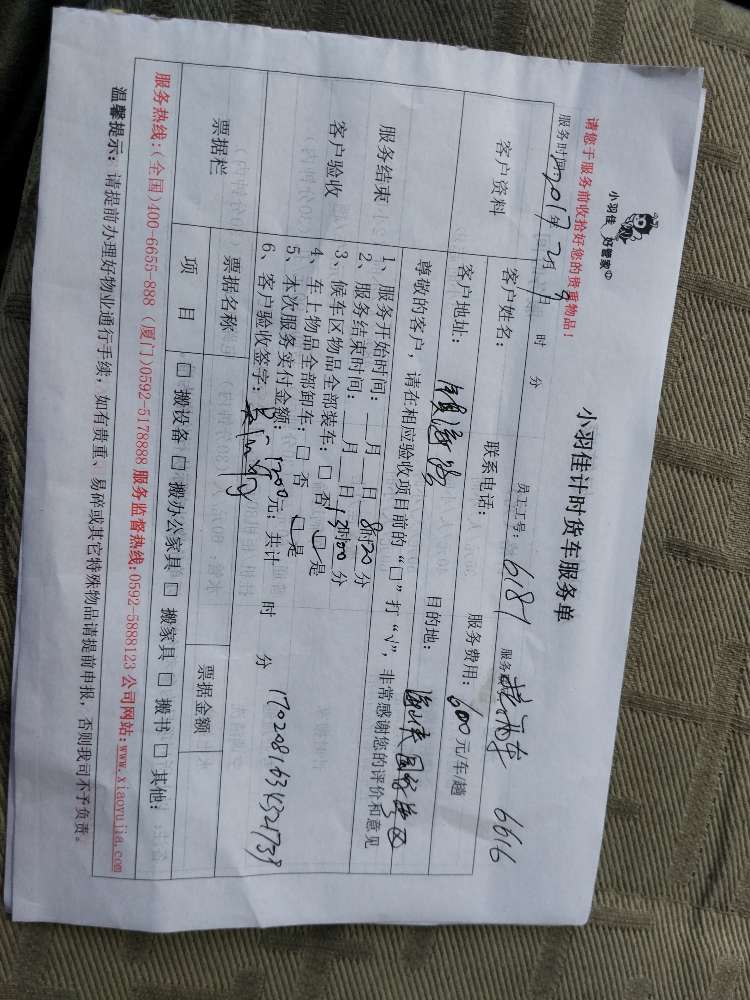 小羽佳 好管家
小羽佳计时货车服务单
请您于服务前收拾好您的贵重物品！
服务时间：2017年2月9日 时 分 员工工号：6181 服务 6616
客户资料 客户姓名： 联系电话： 服务费用：600元车/趟
客户地址： 目的地：
尊敬的客户，请在相应验收项目前的“□”打“√”，非常感谢您的评价和意见
服务结束
客户验收
1、服务开始时间：__月__日8时20分
2、服务结束时间：__月__日13时00分
3、候车区物品全部装车：□否 □是
4、车上物品全部卸车：□否 □是
5、本次服务实付金额：1200元；共计 时 分 170281634321739
6、客户验收签字：
票据栏 票据名称 票据金额
项 目 □搬设备 □搬办公家具 □搬家具 □搬书 □其他：
服务热线：(全国)400-6655-888 (厦门)0592-5178888 服务监督热线：0592-5888123 公司网站：www.xiaoyujia.com
温馨提示：请提前办理好物业通行手续，如有贵重、易碎或其它特殊物品请提前申报，否则我司不予负责。